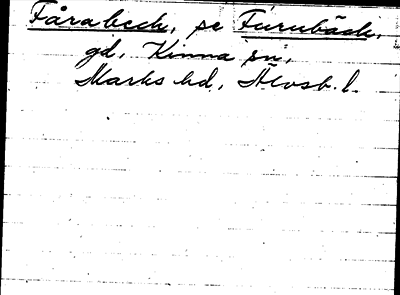 Fårabeck, se Furubäck,
gd, Kinna sn,
Marks hd, Älvsb. l.